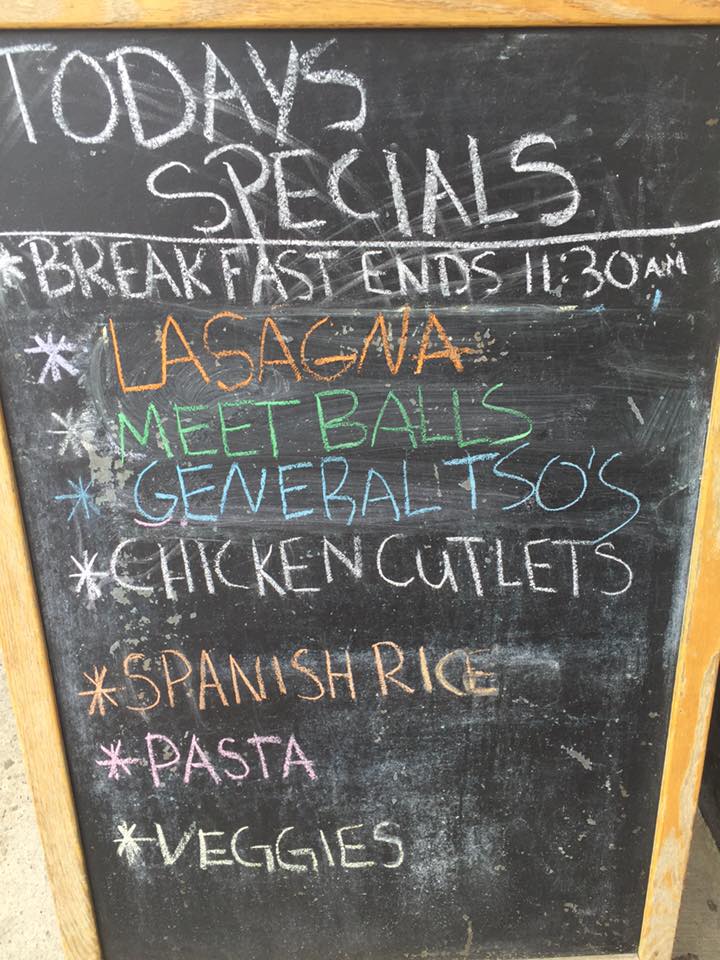 TODAYS
SPECIALS
*BREAKFAST ENDS 11:30AM
* LASAGNA
* MEET BALLS
* GENERAL TSO'S
*CHICKEN CUTLETS
*SPANISH RICE
*PASTA
*VEGGIES